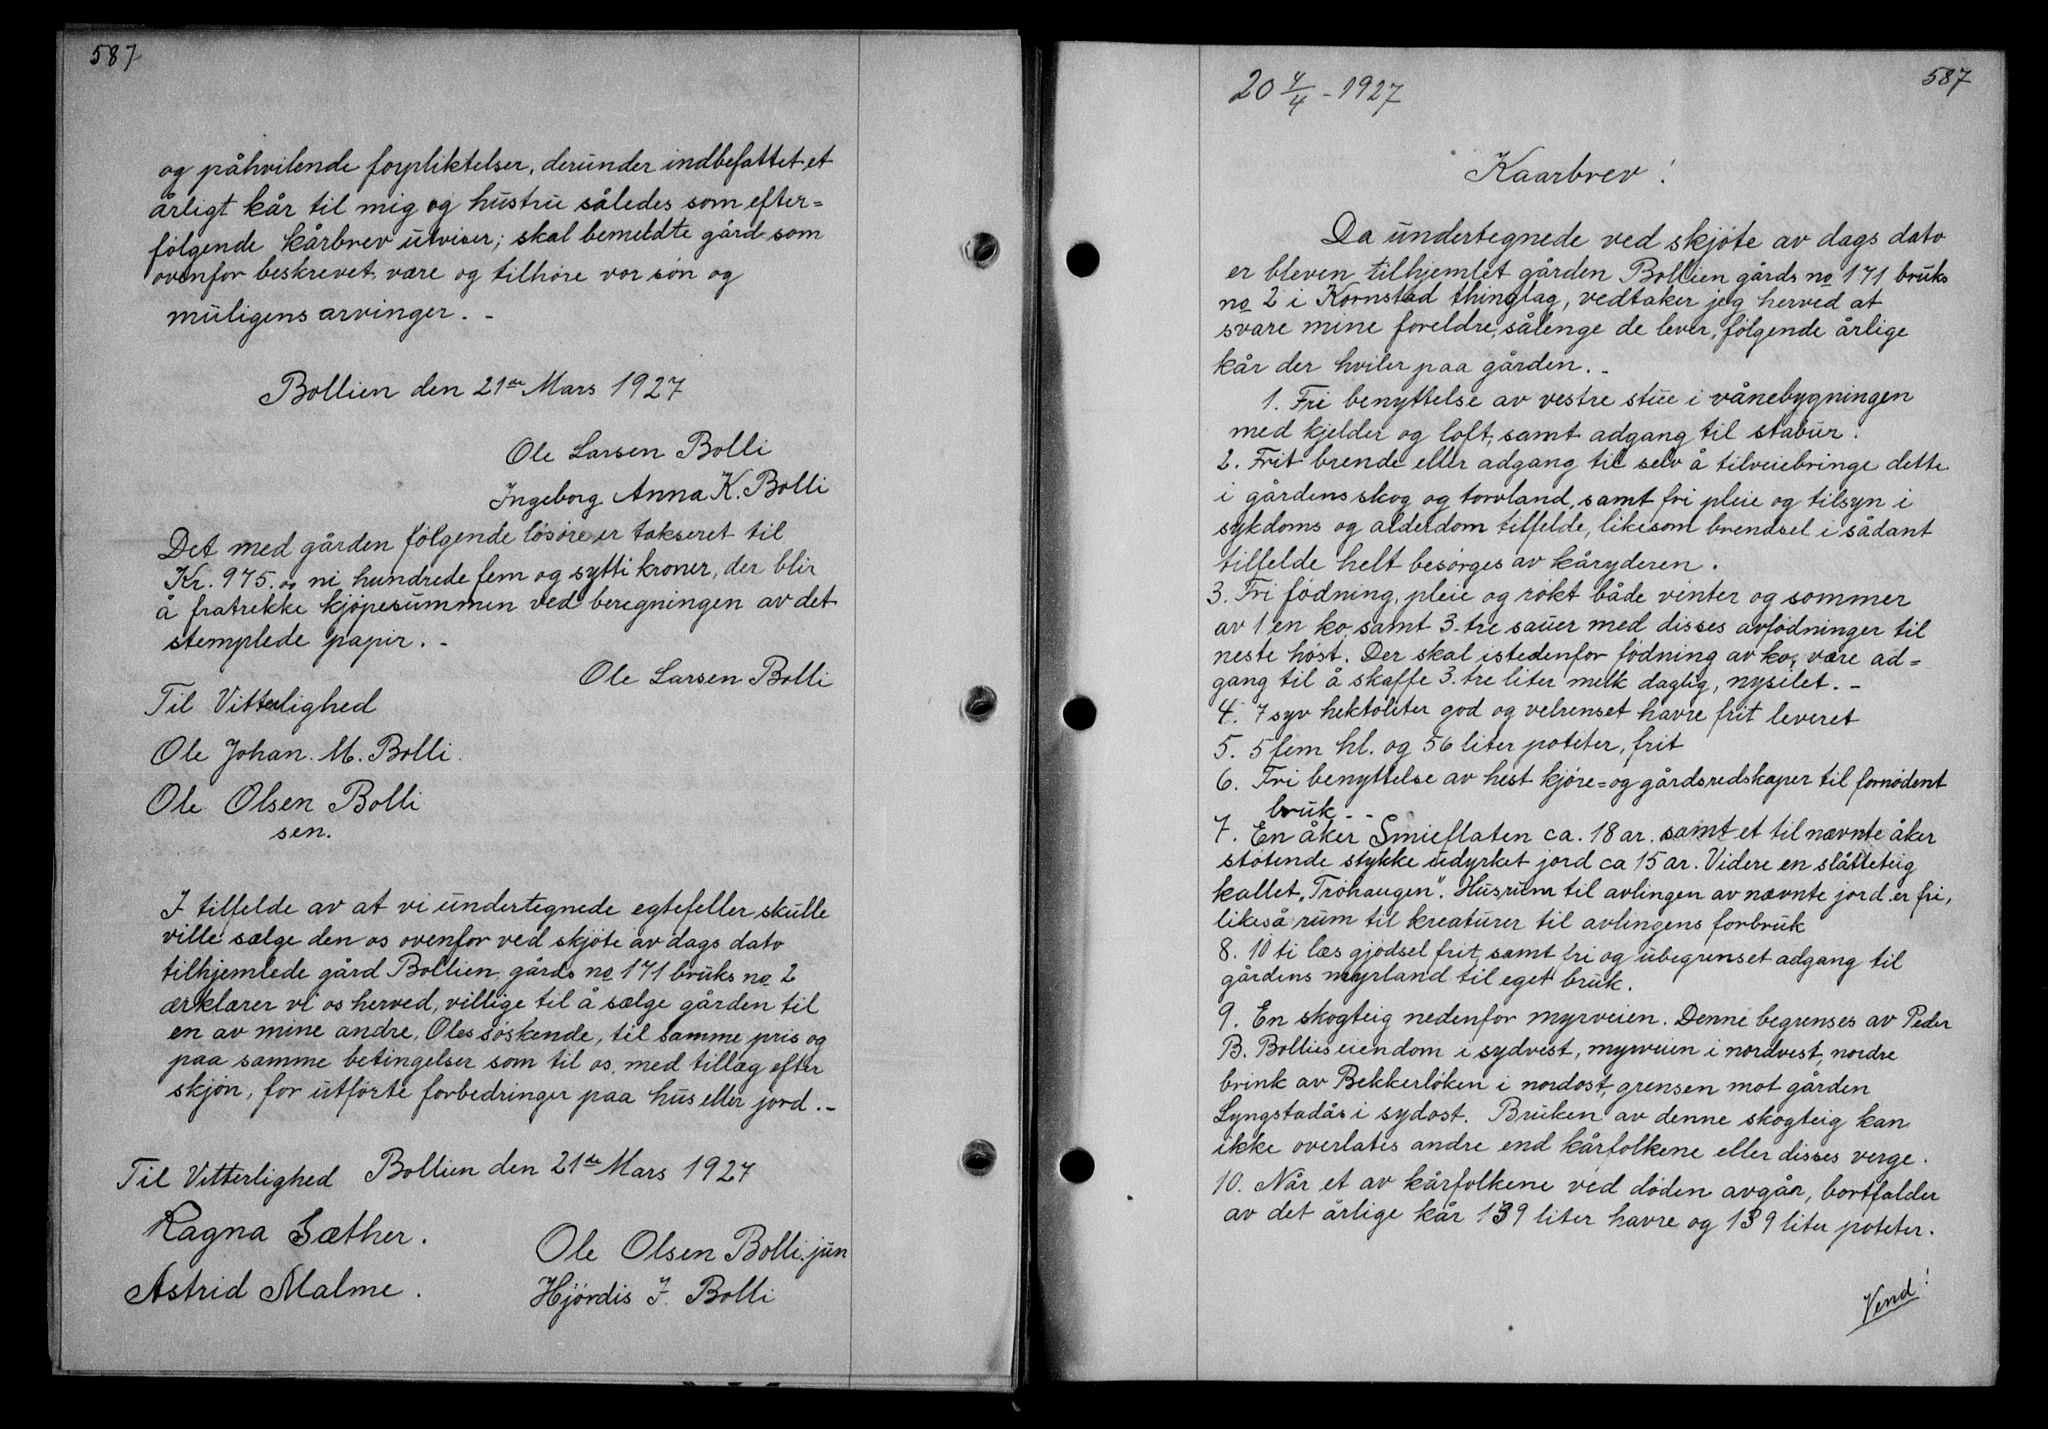 587
og påhvilende forpliktelser, derunder indbefattet et
årligt kår til mig og hustru således som efter=
følgende kårbrev utviser; skal bemeldte gård som
ovenfor beskrevet, være og tilhøre vor søn og
muligens arvinger. -
Bollien den 21de Mars 1927
Ole Larsen Bolli
Ingeborg Anna K. Bolli
Det med gården følgende løsøre er takseret til
Kr. 975.00 ni hundrede fem og sytti kroner, der blir
å fratrekke kjøpesummen ved beregningen av det
stemplede papir. -
Ole Larsen Bolli
Til Vitterlighed
Ole Johan. M. Bolli.
Ole Olsen Bolli
sen.
I tilfelde av at vi undertegnede egtefeller skulle
ville sælge den os ovenfor ved skjøte av dags dato
tilhjemlede gård Bollien, gårds no 171 bruks no 2
ærklærer vi os herved, villige til å sælge gården til
en av mine andre, Oles søskende, til samme pris og
paa samme betingelser som til os, med tillæg efter
skjøn, for utførte forbedringer paa hus eller jord. -
Til Vitterlighed Bollien den 21de Mars 1927
Ragna Sæther.
Astrid Malme.
Ole Olsen Bolli. jun
Hjørdis J. Bolli
587
20 4/4 - 1927
Kaarbrev!
Da undertegnede ved skjøte av dags dato
er bleven tilhjemlet gården Bollien gårds no 171 bruks
no 2 i Kornstad thinglag, vedtaker jeg herved at
svare mine foreldre, sålenge de lever, følgende årlige
kår der hviler paa gården. -
1. Fri benyttelse av vestre stue i vånebygningen
med kjelder og loft, samt adgang til stabur.
2. Frit brende eller adgang til selv å tilveiebringe dette
i gårdens skog og torvland, samt fri pleie og tilsyn i
sykdoms og alderdom tilfelde, likesom brendsel i sådant
tilfelde helt besørges av kåryderen.
3. Fri fødning, pleie og røkt både vinter og sommer
av 1 en ko, samt 3 - tre sauer med disses avfødninger til
neste høst. Der skal istedenfor fødning av ko, være ad=
gang til å skaffe 3. tre liter melk daglig, nysilet. -
4. 7 syv hektoliter god og velrenset havre frit leveret
5. 5 fem hl. og 56 liter poteter, frit
6. Fri benyttelse av hest kjøre= og gårdsredskaper til fornødent
bruk - -
7. En åker Smieflaten ca. 18 ar. samt et til nævnte åker
støtende stykke udyrket jord ca 15 ar. Videre en slåtteteig
kallet „Trøhaugen". Husrum til avlingen av nævnte jord er fri,
likeså rum til kreaturer til avlingens forbruk
8. 10 ti læs gjødsel frit, samt fri og ubegrenset adgang til
gårdens myrland til eget bruk.
9. En skogteig nedenfor myrveien. Denne begrenses av Peder
B. Bollies eiendom i sydvest, myrveien i nordvest, nordre
brink av Bekkerløken i nordost, grensen mot gården
Lyngstadås i sydost. Bruken av denne skogteig kan
ikke overlates andre end kårfolkene eller disses verge.
10. Når et av kårfolkene ved døden avgår, bortfalder
av det årlige kår 139 liter havre og 139 liter poteter.
Vend!